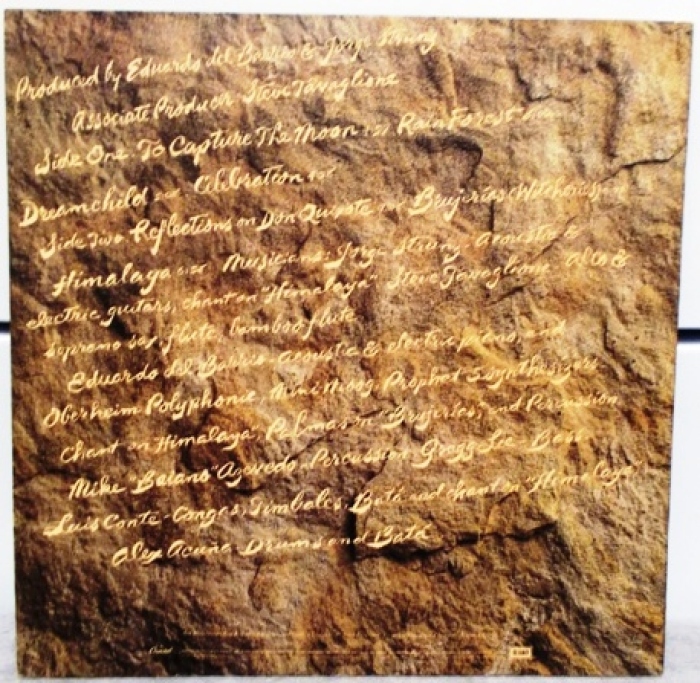 Produced by Eduardo del Barrio & Jorge Strunz
Associate Producer Steve Tavaglione
Side One. To Capture The Moon Rain Forest
Dreamchild Celebration
Side Two Reflections on Don Quixote Brujerias
Himalaya Musicians. Jorge Strunz. Acoustic &
electric guitars, chant on "Himalaya". Steve Tavaglione. Alto &
soprano sax, flute, bamboo flute
Eduardo del Barrio. Acoustic & electric piano, and
Oberheim Polyphonic, Mini Moog, Prophet 5 synthesizers
Chant on Himalaya, Palmas on "Brujerias, and Percussion
Mike "Baiano" Azevedo. Percussion. Gregg Lee. Bass
Luis Conte - Congas, Timbales, Batá and chant on "Himalaya"
Alex Acuña - Drums and Batá